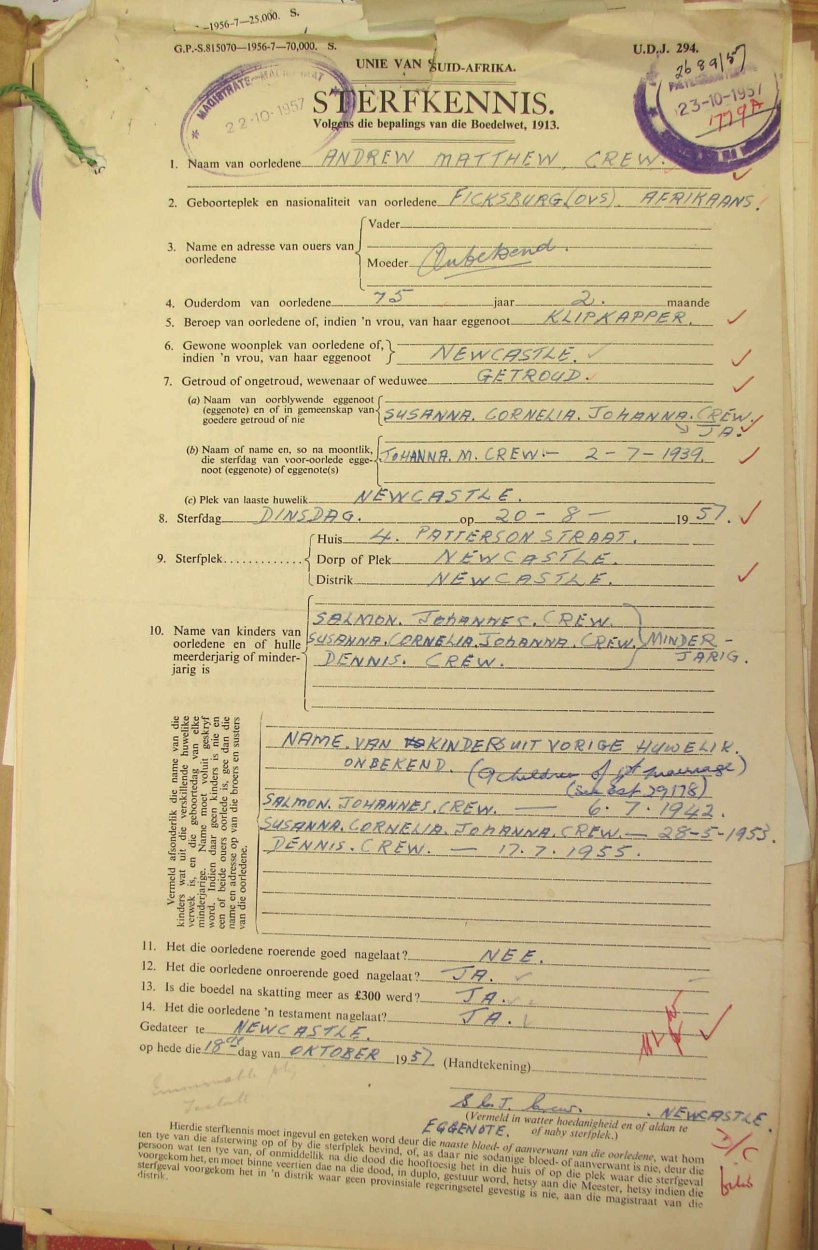 —1956-7—25,000. S.
G.P.-S.815070—1956-7—70,000. S.
U.D.J. 294.
UNIE VAN SUID-AFRIKA.
2689/57
MAGISTRATE—MAGISTRAAT
22-10-1957
23-10-1957
1779A
STERFKENNIS.
Volgens die bepalings van die Boedelwet, 1913.
1. Naam van oorledene ANDREW MATTHEW CREW.
2. Geboorteplek en nasionaliteit van oorledene FICKSBURG (OVS). AFRIKAANS.
3. Name en adresse van ouers van oorledene
Vader
Moeder Onbekend.
4. Ouderdom van oorledene 75 jaar 2. maande
5. Beroep van oorledene of, indien 'n vrou, van haar eggenoot KLIPKAPPER.
6. Gewone woonplek van oorledene of, indien 'n vrou, van haar eggenoot NEWCASTLE.
7. Getroud of ongetroud, wewenaar of weduwee GETROUD.
(a) Naam van oorblywende eggenoot (eggenote) en of in gemeenskap van goedere getroud of nie SUSANNA. CORNELIA. JOHANNA. CREW.
JA.
(b) Naam of name en, so na moontlik, die sterfdag van voor-oorlede eggenoot (eggenote) of eggenote(s) JOHANNA. M. CREW.— 2-7-1939.
(c) Plek van laaste huwelik NEWCASTLE.
8. Sterfdag DINSDAG. op 20-8- 1957.
9. Sterfplek
Huis 4. PATTERSON STRAAT.
Dorp of Plek NEWCASTLE.
Distrik NEWCASTLE.
10. Name van kinders van oorledene en of hulle meerderjarig of minderjarig is
SALMON. JOHANNES. CREW.
SUSANNA. CORNELIA. JOHANNA. CREW. MINDER-
DENNIS. CREW. JARIG.
Vermeld afsonderlik die name van die kinders wat uit die verskillende huwelike verwek is, en die geboortedag van elke minderjarige. Name moet voluit geskryf word. Indien daar geen kinders is nie en een of beide ouers oorlede is, gee dan die name en adresse op van die broers en susters van die oorledene.
NAME. VAN KINDERS UIT VORIGE HUWELIK.
ONBEKEND. (9 children of 1st marriage)
(see est 29178)
SALMON. JOHANNES. CREW. — 6.7.1942.
SUSANNA. CORNELIA. JOHANNA. CREW. — 28-5-1953.
DENNIS. CREW. — 17.7.1955.
11. Het die oorledene roerende goed nagelaat? NEE.
12. Het die oorledene onroerende goed nagelaat? JA.
13. Is die boedel na skatting meer as £300 werd? JA.
14. Het die oorledene 'n testament nagelaat? JA.
Gedateer te NEWCASTLE.
op hede die 18de dag van OKTOBER 1957. (Handtekening)
S.C.J. Crew. NEWCASTLE.
(Vermeld in watter hoedanigheid en of aldan te
EGGENOTE. of naby sterfplek.)
Hierdie sterfkennis moet ingevul en geteken word deur die naaste bloed- of aanverwant van die oorledene, wat hom
ten tye van die afsterwing op of by die sterfplek bevind, of, as daar nie sodanige bloed- of aanverwant is nie, deur die
persoon wat ten tye van, of onmiddellik na die dood die hooftoesig het in die huis of op die plek waar die sterfgeval
voorgekom het, en moet binne veertien dae na die dood, in duplo, gestuur word, hetsy aan die Meester, hetsy indien die
sterfgeval voorgekom het in 'n distrik waar geen provinsiale regeringsetel gevestig is nie, aan die magistraat van die
distrik.